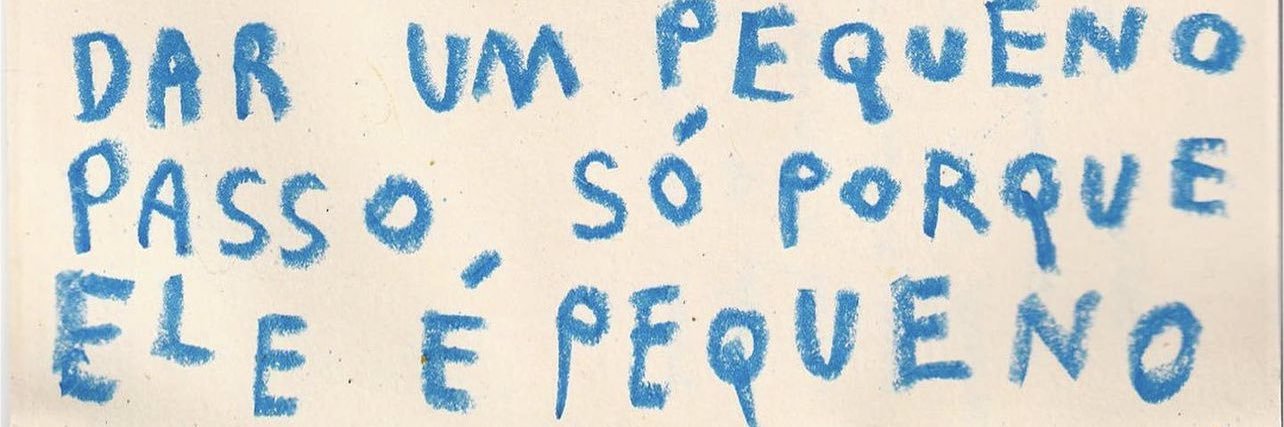 DAR UM PEQUENO
PASSO SÓ PORQUE
ELE É PEQUENO